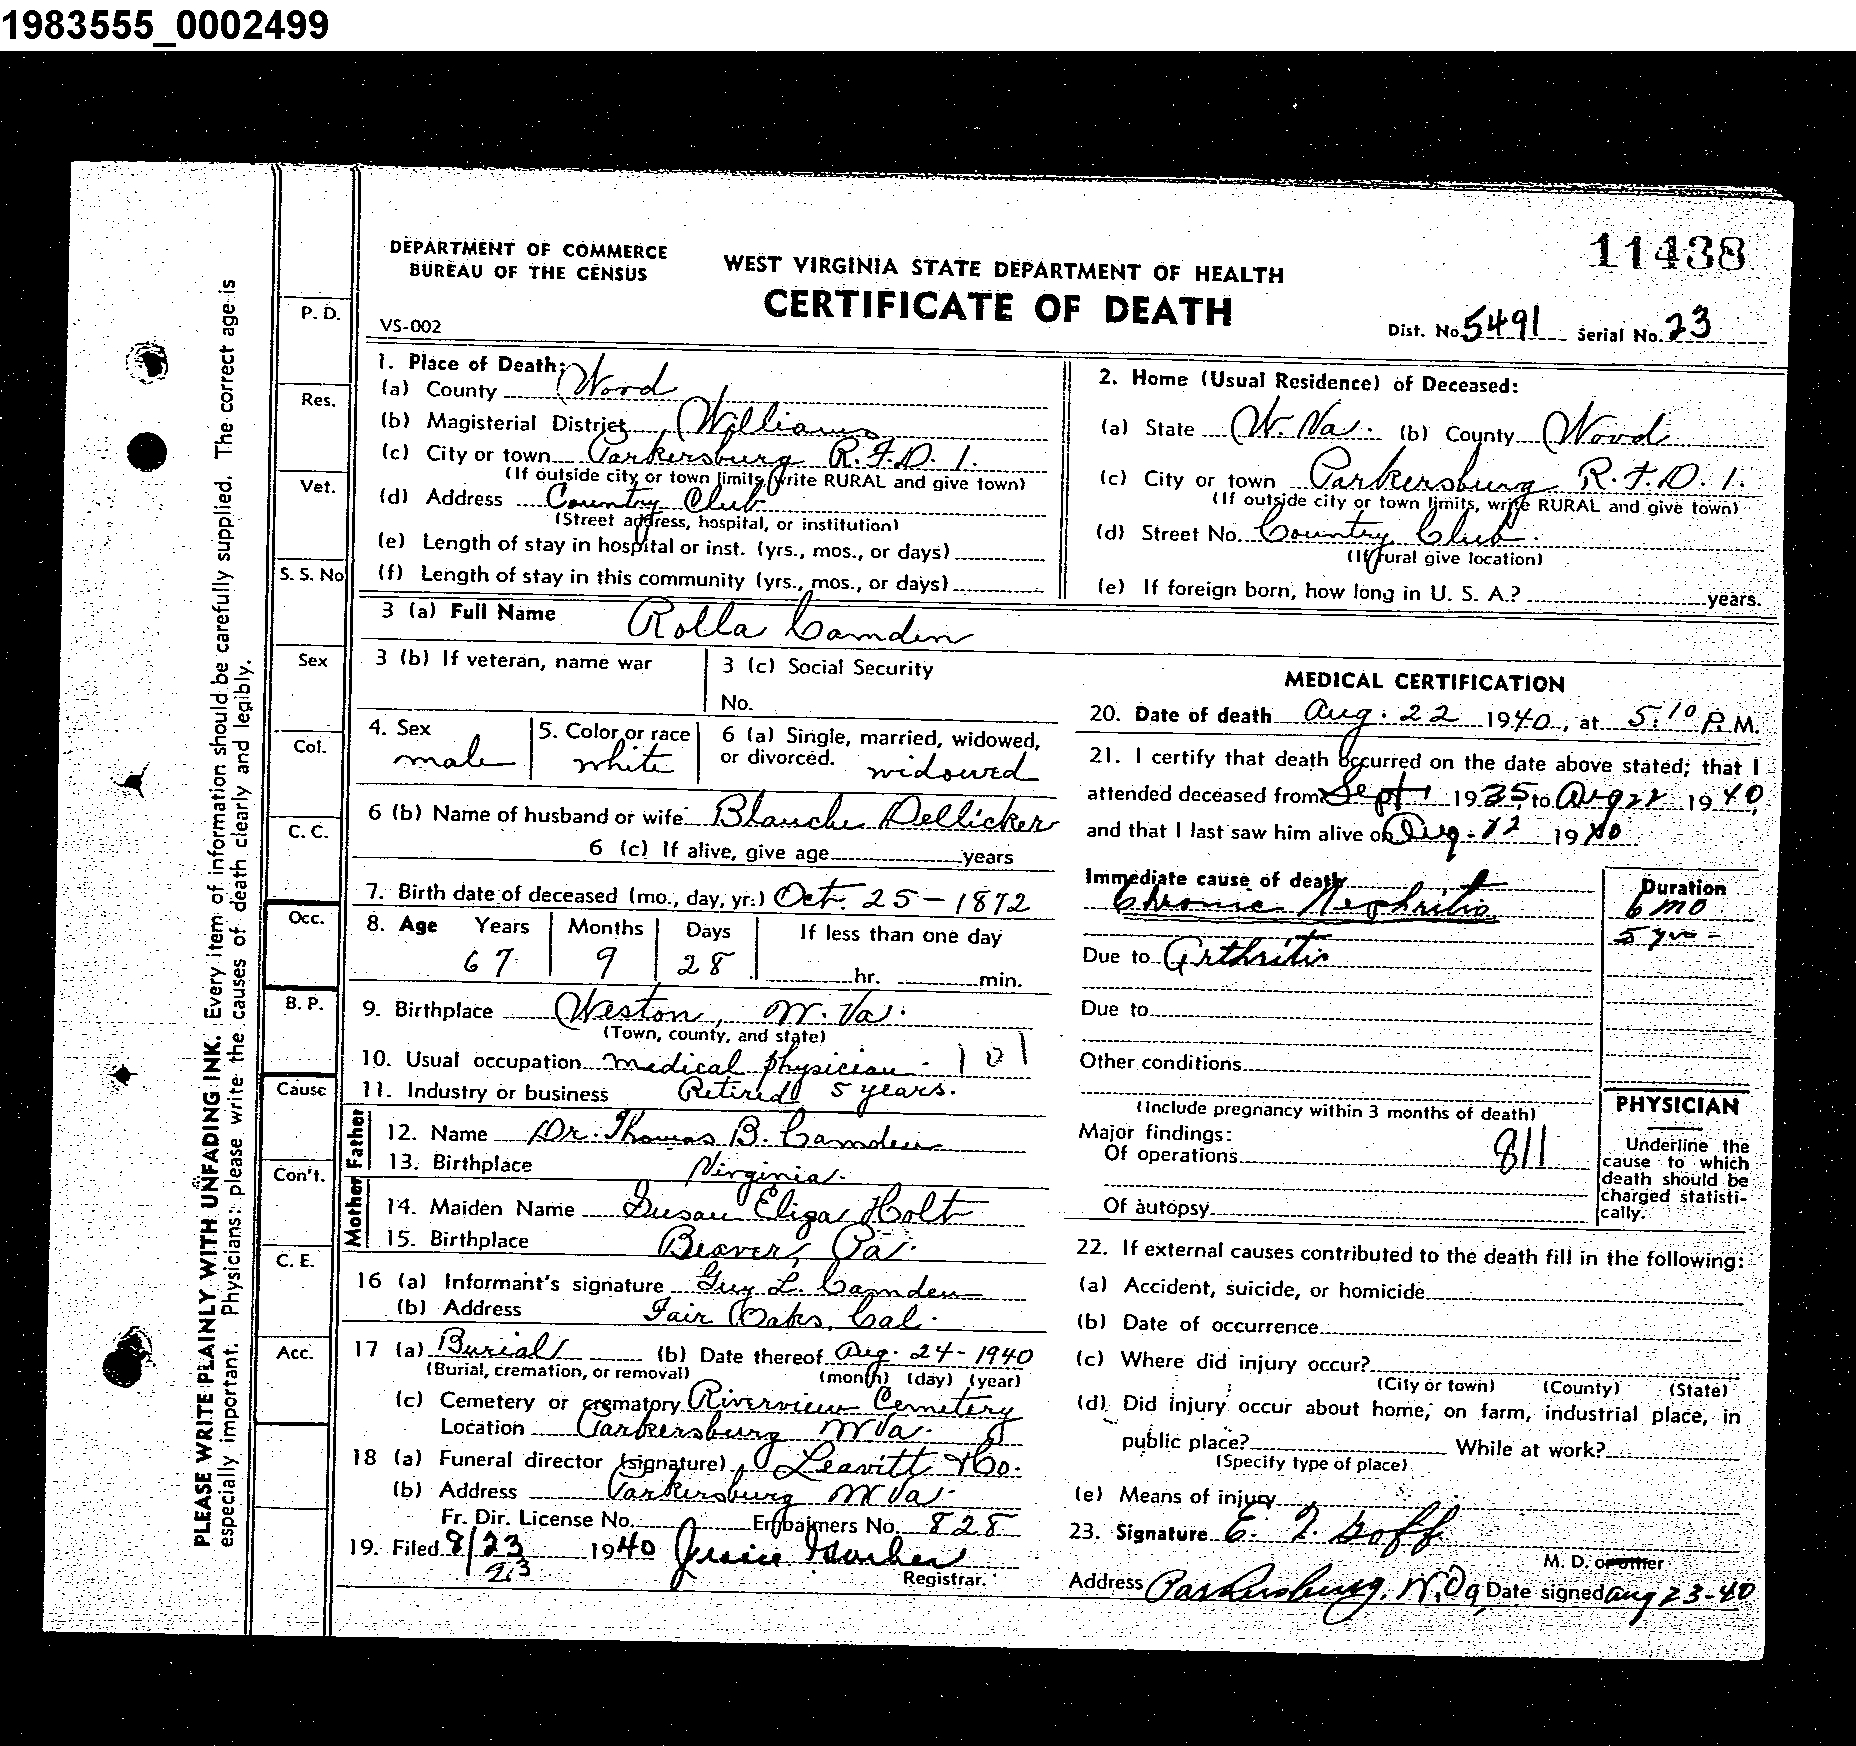 1983555_0002499
DEPARTMENT OF COMMERCE
BUREAU OF THE CENSUS
WEST VIRGINIA STATE DEPARTMENT OF HEALTH
11438
CERTIFICATE OF DEATH
VS-002
Dist. No. 5491 Serial No. 23
PLEASE WRITE PLAINLY WITH UNFADING INK. Every item of information should be carefully supplied. The correct age is
especially important. Physicians: please write the causes of death clearly and legibly.
P. D.
Res.
Vet.
S. S. No
Sex
Col.
C. C.
Occ.
B. P.
Cause
Con't.
C. E.
Acc.
1. Place of Death:
(a) County Wood
(b) Magisterial District Williams
(c) City or town Parkersburg R.F.D. 1.
(If outside city or town limits, write RURAL and give town)
(d) Address Country Club
(Street address, hospital, or institution)
(e) Length of stay in hospital or inst. (yrs., mos., or days)
(f) Length of stay in this community (yrs., mos., or days)
2. Home (Usual Residence) of Deceased:
(a) State W. Va. (b) County Wood
(c) City or town Parkersburg R.F.D. 1.
(If outside city or town limits, write RURAL and give town)
(d) Street No. Country Club.
(If rural give location)
(e) If foreign born, how long in U. S. A.? years.
3 (a) Full Name Rolla Camden
3 (b) If veteran, name war
3 (c) Social Security
No.
4. Sex male
5. Color or race white
6 (a) Single, married, widowed,
or divorced. widowed
6 (b) Name of husband or wife Blanche Dellicker
6 (c) If alive, give age years
7. Birth date of deceased (mo., day, yr.) Oct. 25 - 1872
8. Age Years Months Days If less than one day
67 9 28 hr. min.
9. Birthplace Weston, W. Va.
(Town, county, and state)
10. Usual occupation medical physician. 101
11. Industry or business Retired 5 years.
Father
12. Name Dr. Thomas B. Camden
13. Birthplace Virginia.
Mother
14. Maiden Name Susan Eliza Holt
15. Birthplace Beaver, Pa.
16 (a) Informant's signature Guy L. Camden
(b) Address Fair Oaks, Cal.
17 (a) Burial (b) Date thereof Aug. 24 - 1940
(Burial, cremation, or removal) (month) (day) (year)
(c) Cemetery or crematory Riverview Cemetery
Location Parkersburg W Va.
18 (a) Funeral director (signature) Leavitt & Co.
(b) Address Parkersburg W Va.
Fr. Dir. License No. Embalmers No. 828
19. Filed 8/23 1940
23
Registrar.
MEDICAL CERTIFICATION
20. Date of death Aug. 22 1940, at 5:10 P. M.
21. I certify that death occurred on the date above stated; that I
attended deceased from Sept 1 1935, to Aug 22 1940,
and that I last saw him alive on Aug. 22 1940
Immediate cause of death
Chronic Nephritis
Duration
6 mo
5 yrs -
Due to Arthritis
Due to
Other conditions
(Include pregnancy within 3 months of death)
Major findings:
Of operations 811
Of autopsy
PHYSICIAN
Underline the
cause to which
death should be
charged statisti-
cally.
22. If external causes contributed to the death fill in the following:
(a) Accident, suicide, or homicide
(b) Date of occurrence
(c) Where did injury occur?
(City or town) (County) (State)
(d) Did injury occur about home, on farm, industrial place, in
public place? While at work?
(Specify type of place)
(e) Means of injury
23. Signature E. T. Goff
M. D. or other
Address Parkersburg, W. Va. Date signed Aug 23-40